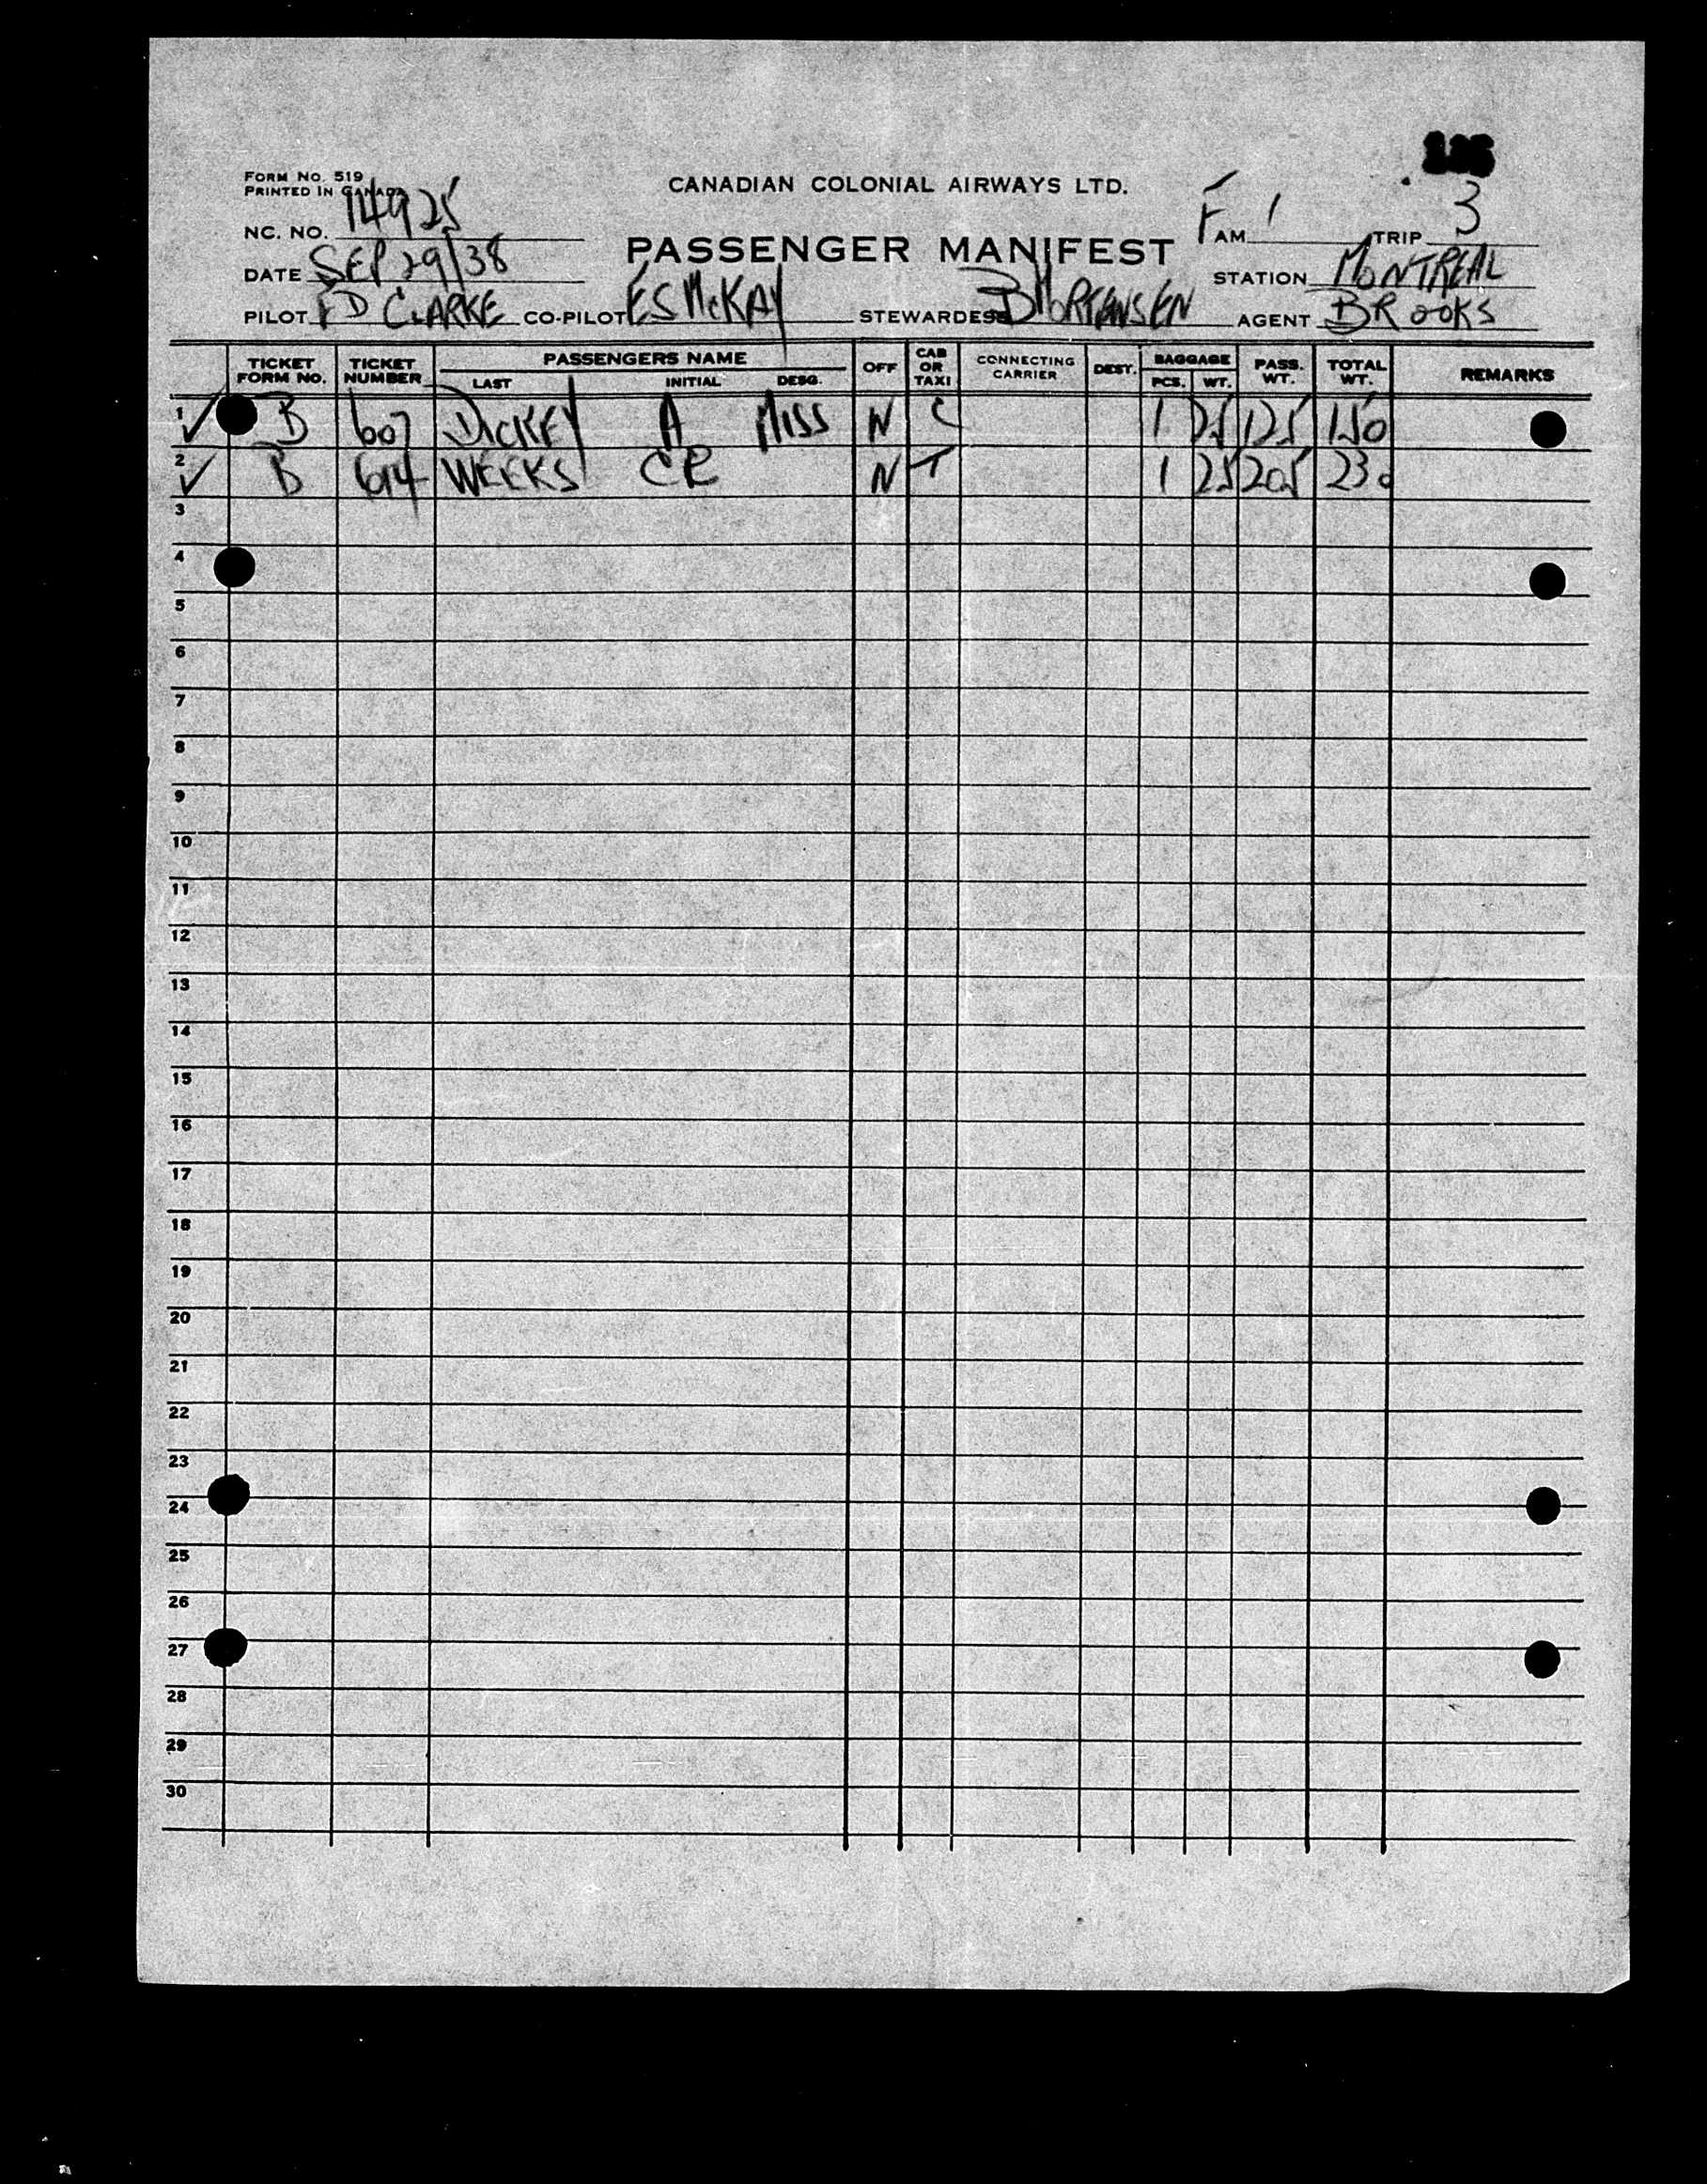 FORM NO. 519
PRINTED IN CANADA
CANADIAN COLONIAL AIRWAYS LTD.
NC. NO. 14925
PASSENGER MANIFEST
F AM 1 TRIP 3
DATE SEP 29/38
STATION MONTREAL
PILOT FD CLARKE CO-PILOT ES McKAY STEWARDESS B MORTENSEN AGENT BROOKS
TICKET FORM NO. TICKET NUMBER PASSENGERS NAME LAST INITIAL DESG. OFF CAB OR TAXI CONNECTING CARRIER DEST. BAGGAGE PCS. WT. PASS. WT. TOTAL WT. REMARKS
1 ✓ B 607 DICKEY A MISS N C 1 25 125 150
2 ✓ B 614 WEEKS CR N T 1 25 205 230
3
4
5
6
7
8
9
10
11
12
13
14
15
16
17
18
19
20
21
22
23
24
25
26
27
28
29
30